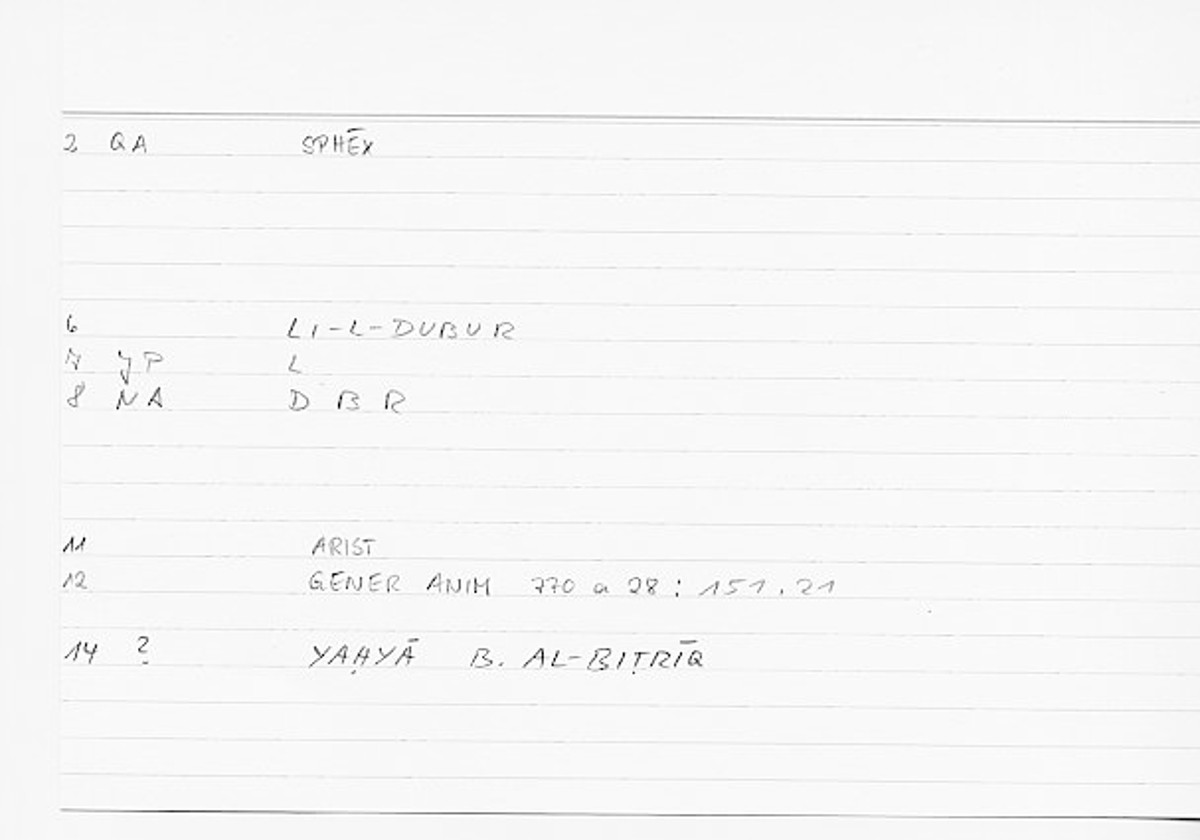 2 QA SPHĒX
6 LI-L-DUBUR
7 JP L
8 NA D B R
11 ARIST
12 GENER ANIM 770 a 28 : 151.21
14 ? YAḤYĀ B. AL-BIṬRĪQ